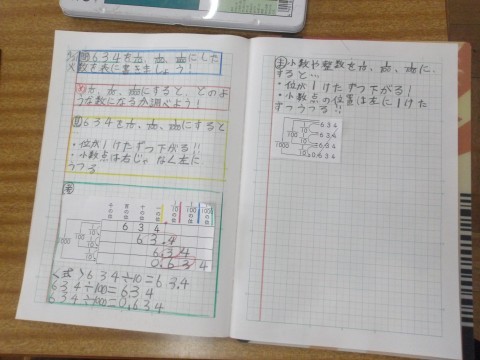 問 634を1/10、1/100、1/1000にした
数を表に書きましょう!
1/10、1/100、1/1000にすると、どのよ
うな数になるか調べよう!
634を1/10、1/100、1/1000にすると
・位が1けたずつ下がる!!
・小数点は右じゃなく左に
うつる
考
千の位 百の位 十の位 一の位 1/10の位 1/100の位 1/1000の位
6 3 4
6 3.4
6.3 4
0.6 3 4
1000 100 10 10 10
<式> 634÷10=63.4
634÷100=6.34
634÷1000=0.634
ま 小数や整数を1/10、1/100、1/1000に
すると…
・位が1けたずつ下がる!
・小数点の位置は左に1けた
ずつうつる!!
634
63.4
6.34
0.634
1000 100 10 10 10